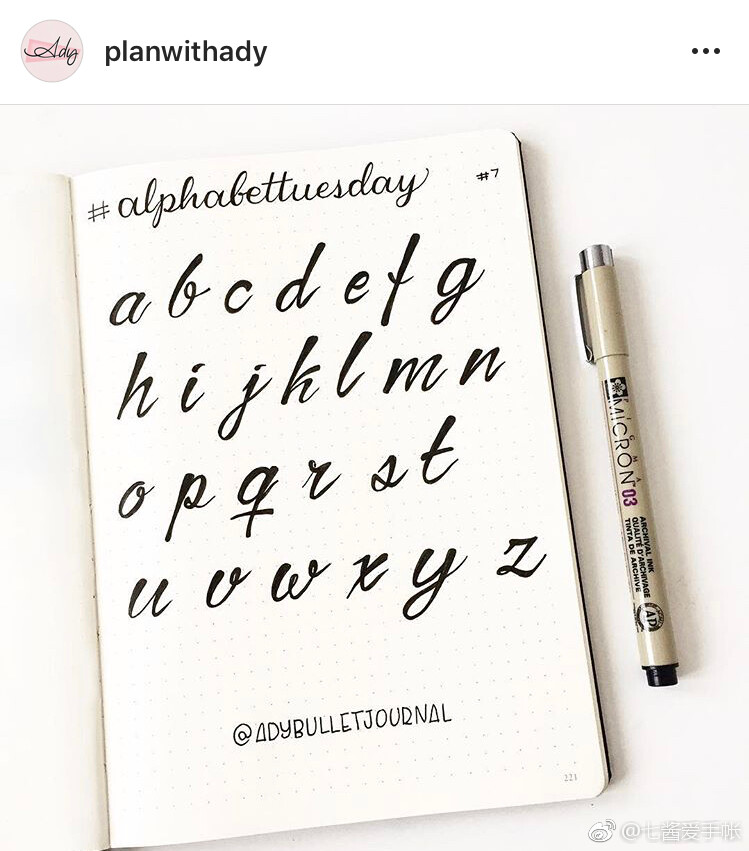 Ady
planwithady
#alphabettuesday
#7
a b c d e f g
h i j k l m n
o p q r s t
u v w x y z
@ADYBULLETJOURNAL
221
PIGMA
MICRON™ 03
ARCHIVAL INK
QUALITÉ D'ARCHIVAGE
TINTA DE ARCHIVE
AD
@七酱爱手帐